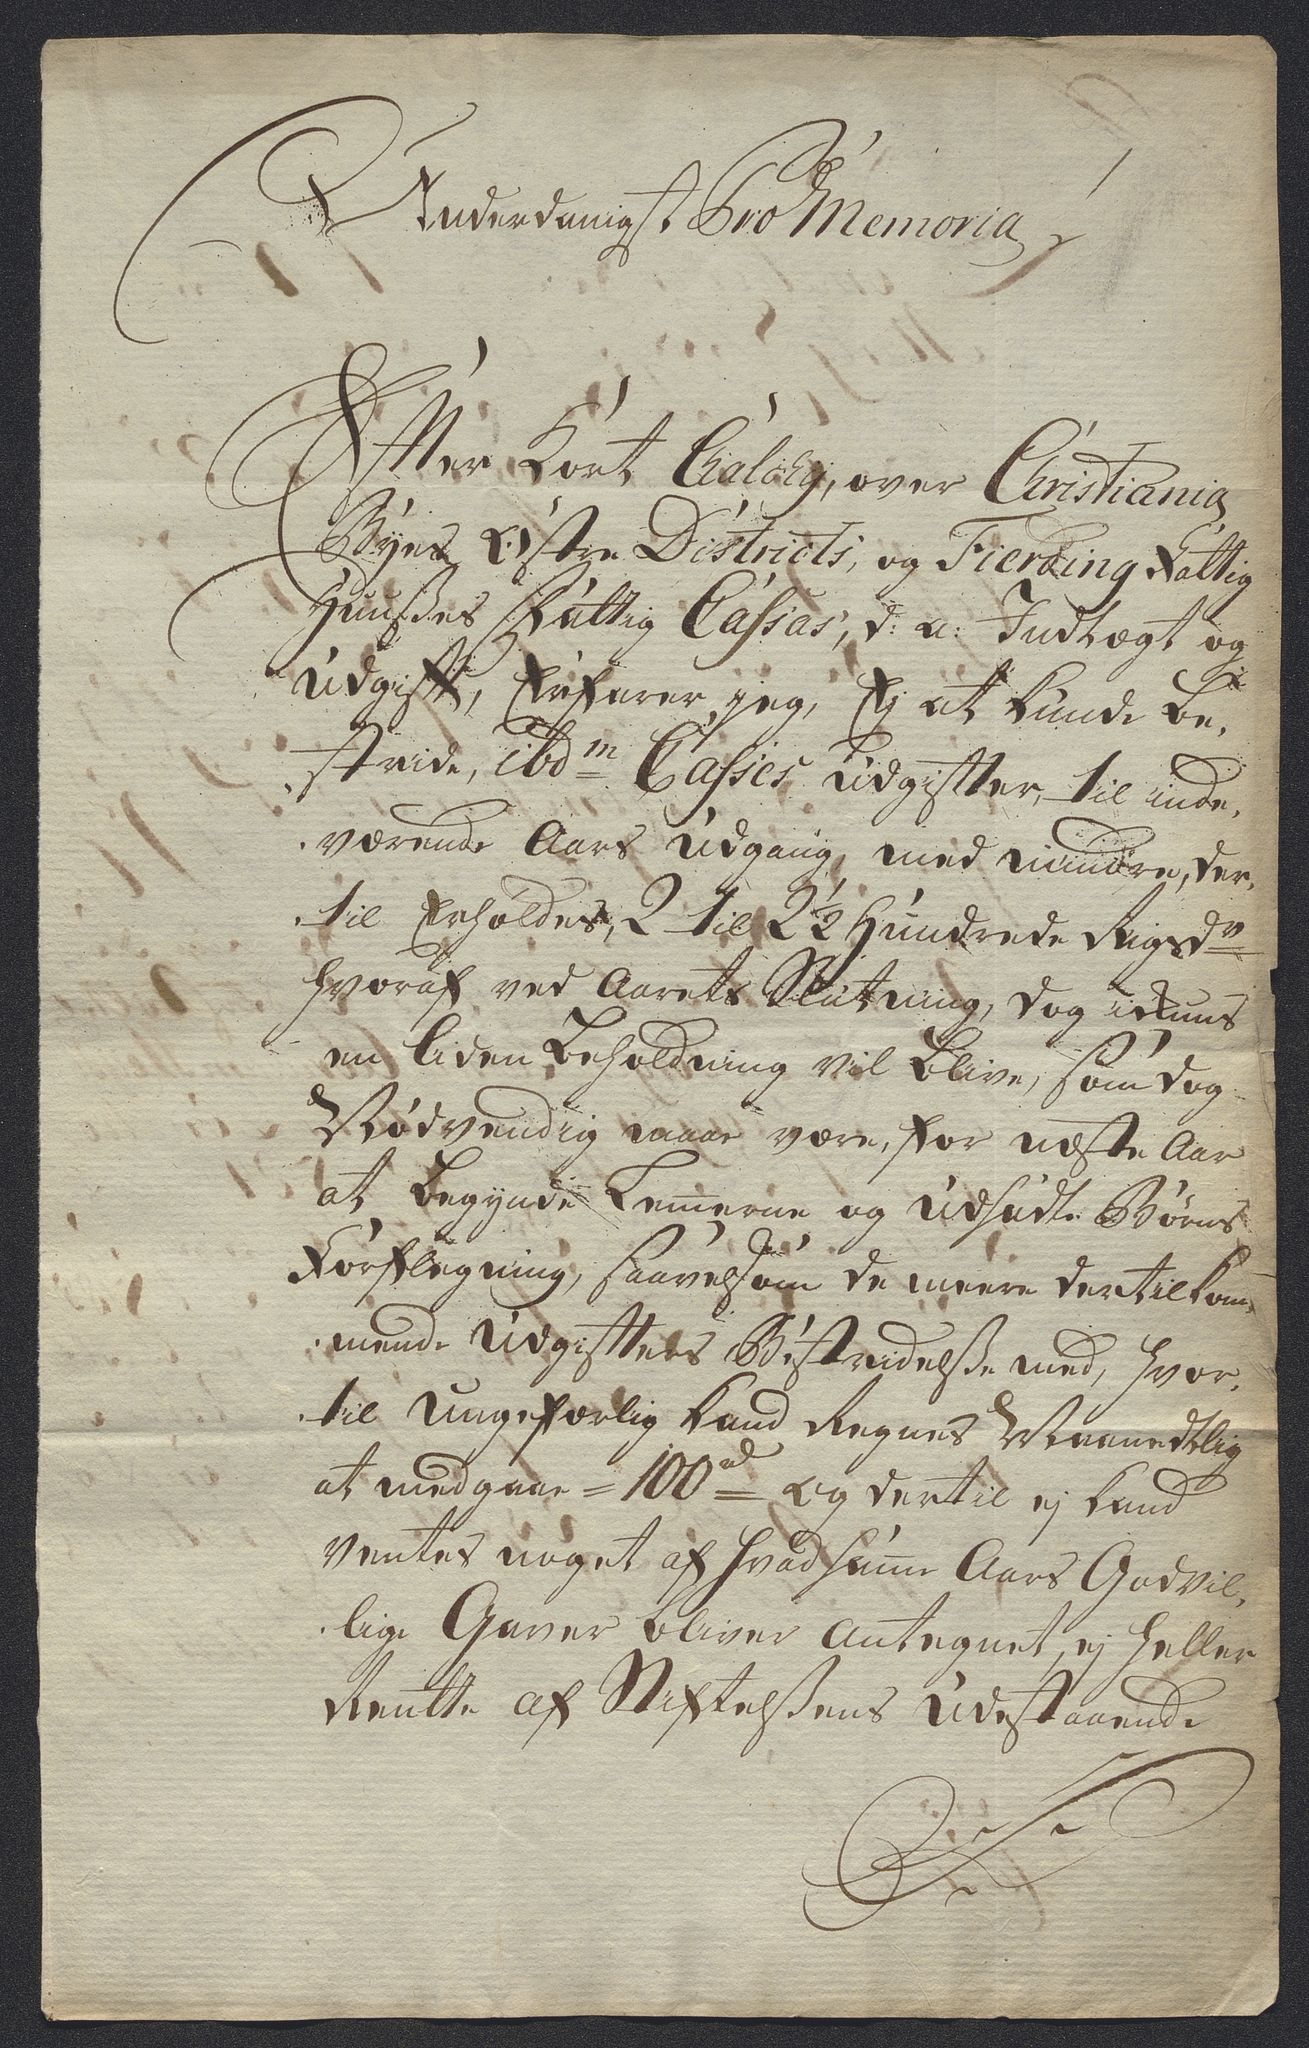 Underdanigst Pro Memoria
Efter Kort Calcky, over Christiania
Byes Østre Districts, og Fierding Fattig
Huußes Fattig Cassas, d: a: Indtægt og
Udgift, Erfarer jeg, Ej at kunde be,
stride, ibdm Casses Udgifter, til inde,
værende Aars Udgang, med mindre, der,
til Erholdes, 2 til 2½ Hundrede Rigsdr
hvoraf ved Aarets Slutning, dog ickuns
en liden Beholdning vil blive, som dog
Nødvendig maae være, for næste Aar
at begynde Lemerne og Udsadte Børns
Forpflegning, saavelsom de meere dertil kom,
mende Udgifters Bestridelße med, hvor,
til ungefærlig kand Regnes Maanedtlig
at medgaae = 100rd = og dertil ej kand
ventes noget af hvad samme Aars Godvil,
lige Gaver bliver antegnet, ej heller
Rentte af Stiftelßens Udestaaende